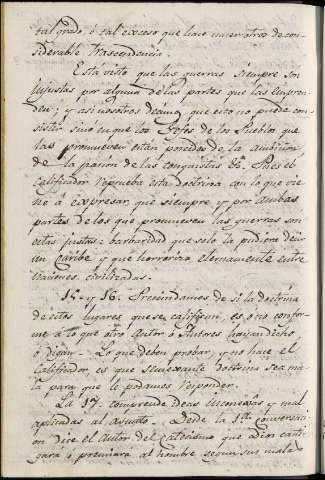 tal grado, ó tal exceso que hace nacer otros de con-
siderable trascendencia.
Está visto que las guerras siempre son
injustas por alguna de las partes que las empren-
den; y asi nosotros decimos que esto no puede con-
sistir sino en que los Gefes de los Pueblos que
las promueven estan poseidos de la ambicion
de la pasion de las conquistas &a. Pues el
Calificador reprueba esta doctrina con lo que vie-
ne á expresar que siempre y por ambas
partes de los que promueven las guerras son
estas justas: barbaridad que solo la pudiera decir
un Caribe y que horroriza eternamente entre
naciones civilizadas.
15. y 16. Prescindamos de si la doctrina
de estos lugares que se califican es ó no confor-
me á lo que otro Autor ó Autores hayan dicho
ó digan. Lo que deben probar, y no hace el
Calificador, es que semejante doctrina sea ma-
la para que le podamos responder.
La 17. comprende ideas inconexas y mal
aplicadas al asunto. Desde la 1.a conversaci-
on dice el Autor del Catecismo que Dios casti-
gará ó premiará al hombre segun sus malas